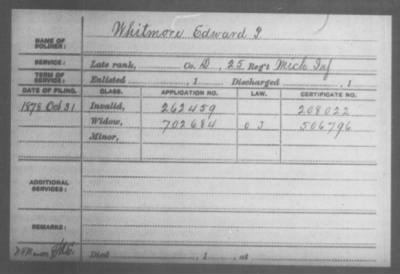 NAME OF SOLDIER: Whitmore Edward
SERVICE: Late rank, Co. D, 25 Reg't Mich Inf
TERM OF SERVICE: Enlisted , 1 Discharged , 1
DATE OF FILING. CLASS. APPLICATION NO. LAW. CERTIFICATE NO.
1878 Oct 31 Invalid, 262459 208022
Widow, 702684 03 506796
Minor,
ADDITIONAL SERVICES:
REMARKS:
Died , 1 , at